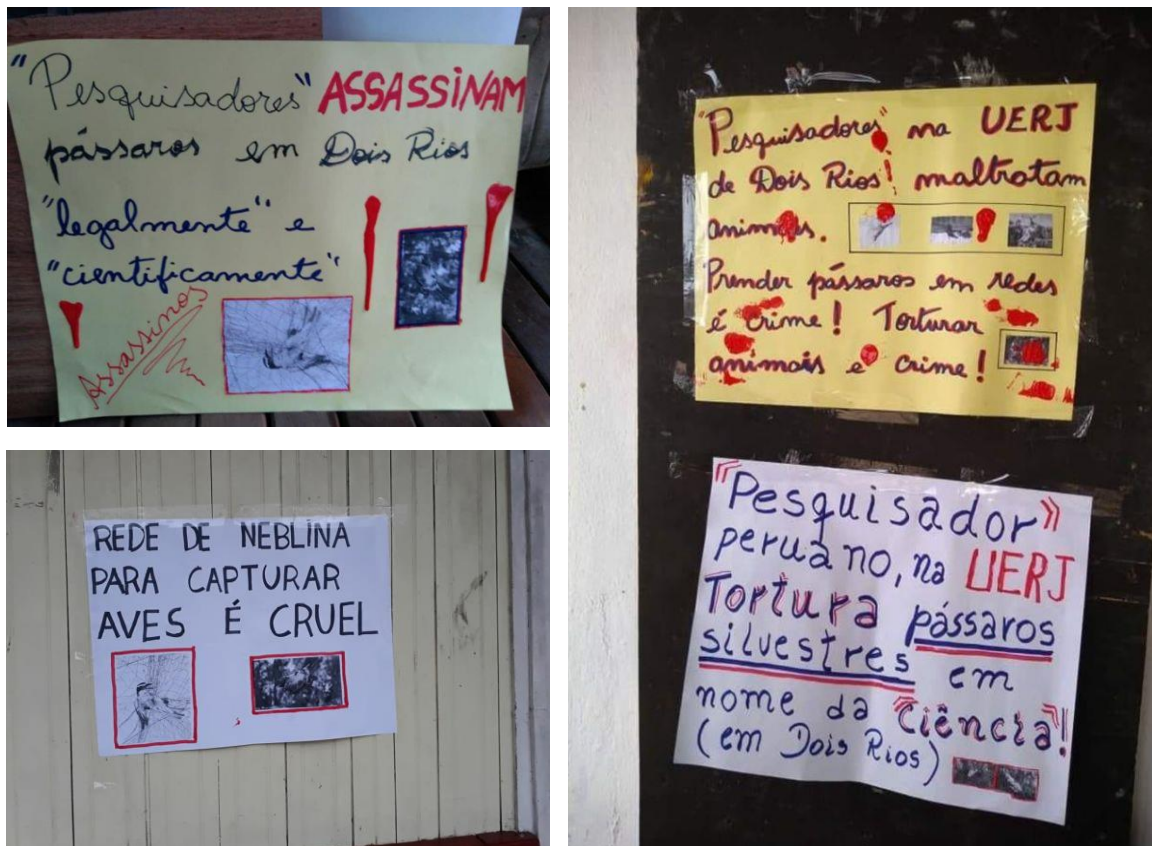 "Pesquisadores" ASSASSINAM
pássaros em Dois Rios
"legalmente" e
"cientificamente"
Assassinos
REDE DE NEBLINA
PARA CAPTURAR
AVES É CRUEL
"Pesquisadores" na UERJ
de Dois Rios! maltratam
animais.
Prender pássaros em redes
é crime! Torturar
animais é crime!
"Pesquisador"
peruano, na UERJ
Tortura pássaros
silvestres em
nome da "Ciência"!
(em Dois Rios)